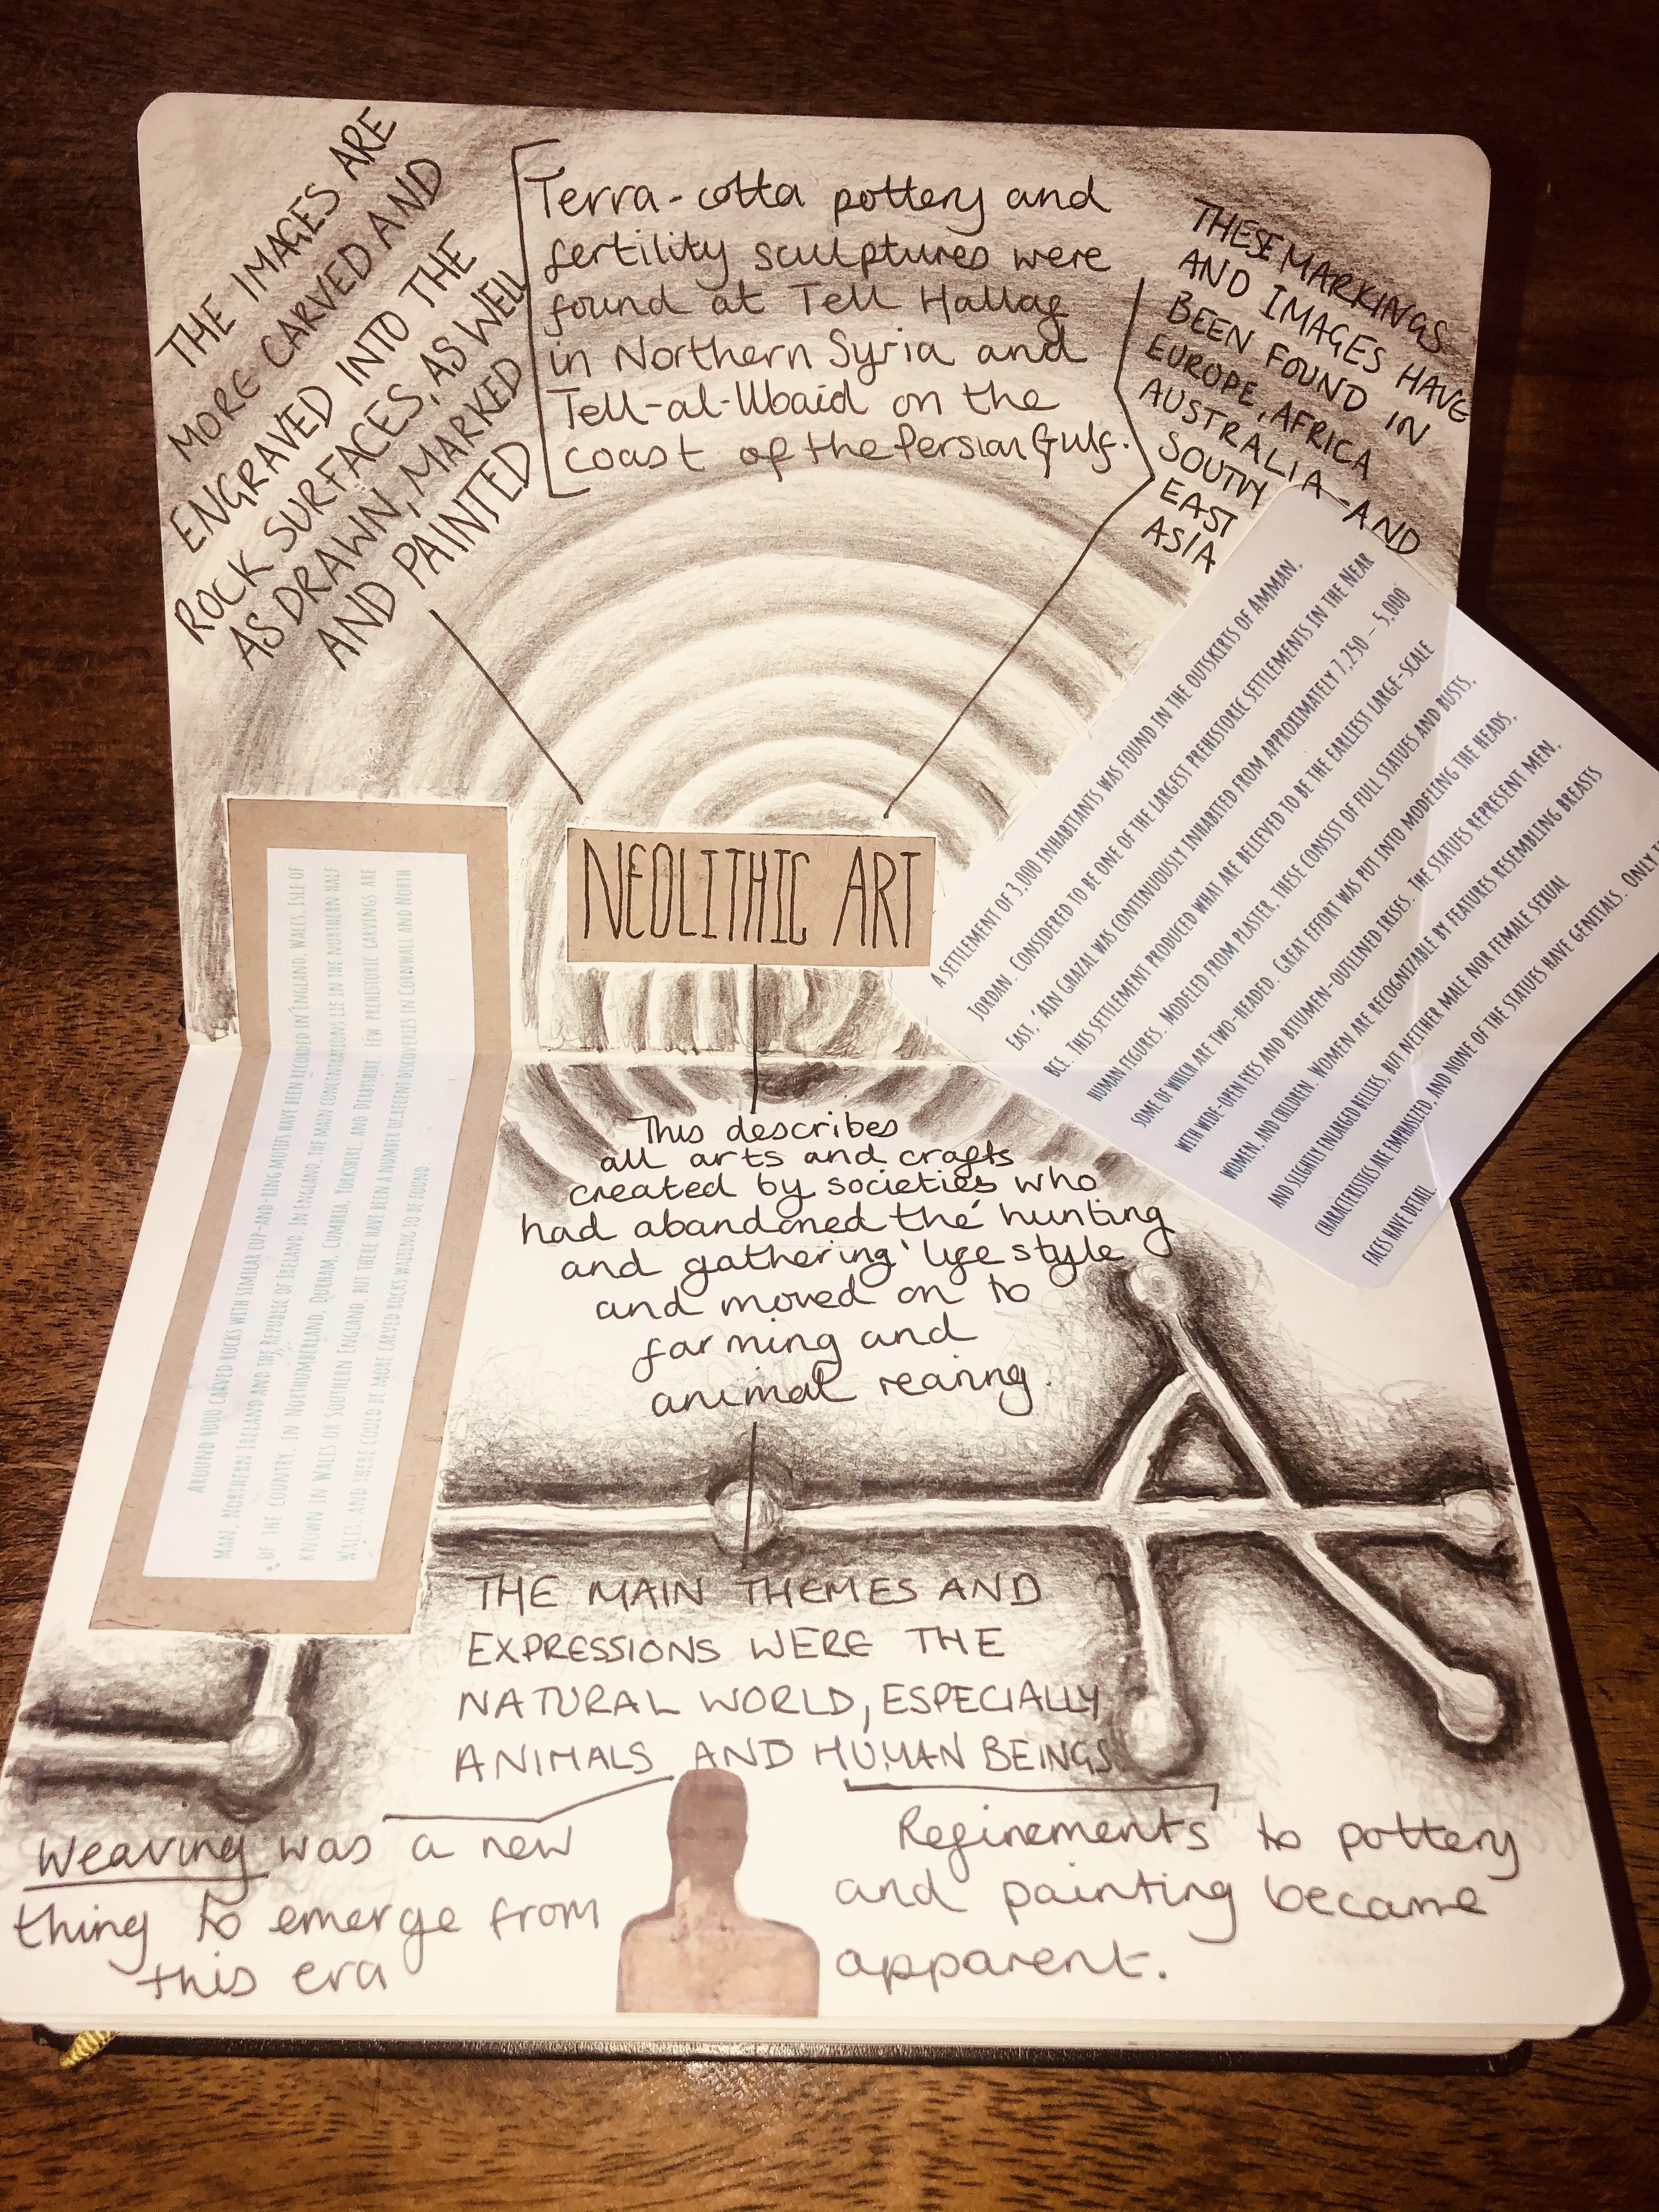 THE IMAGES ARE
MORE CARVED AND
ENGRAVED INTO THE
ROCK SURFACES, AS WELL
AS DRAWN, MARKED
AND PAINTED
Terra-cotta pottery and
fertility sculptures were
found at Tell Hallaf
in Northern Syria and
Tell-al-Ubaid on the
coast of the Persian Gulf.
THESE MARKINGS
AND IMAGES HAVE
BEEN FOUND IN
EUROPE, AFRICA
AUSTRALIA AND
SOUTH
EAST
ASIA
NEOLITHIC ART
A SETTLEMENT OF 3,000 INHABITANTS WAS FOUND IN THE OUTSKIRTS OF AMMAN,
JORDAN. CONSIDERED TO BE ONE OF THE LARGEST PREHISTORIC SETTLEMENTS IN THE NEAR
EAST, 'AIN GHAZAL WAS CONTINUOUSLY INHABITED FROM APPROXIMATELY 7,250 – 5,000
BCE. THIS SETTLEMENT PRODUCED WHAT ARE BELIEVED TO BE THE EARLIEST LARGE-SCALE
HUMAN FIGURES. MODELED FROM PLASTER, THESE CONSIST OF FULL STATUES AND BUSTS,
SOME OF WHICH ARE TWO-HEADED. GREAT EFFORT WAS PUT INTO MODELING THE HEADS,
WITH WIDE-OPEN EYES AND BITUMEN-OUTLINED IRISES. THE STATUES REPRESENT MEN,
WOMEN, AND CHILDREN. WOMEN ARE RECOGNIZABLE BY FEATURES RESEMBLING BREASTS
AND SLIGHTLY ENLARGED BELLIES, BUT NEITHER MALE NOR FEMALE SEXUAL
CHARACTERISTICS ARE EMPHASIZED, AND NONE OF THE STATUES HAVE GENITALS. ONLY
FACES HAVE DETAIL
AROUND 4000 CARVED ROCKS WITH SIMILAR CUP-AND-RING MOTIFS HAVE BEEN RECORDED IN ENGLAND, WALES, ISLE OF
MAN, NORTHERN IRELAND AND THE REPUBLIC OF IRELAND. IN ENGLAND, THE MAIN CONCENTRATIONS LIE IN THE NORTHERN HALF
OF THE COUNTRY, IN NORTHUMBERLAND, DURHAM, CUMBRIA, YORKSHIRE, AND DERBYSHIRE. FEW PREHISTORIC CARVINGS ARE
KNOWN IN WALES OR SOUTHERN ENGLAND, BUT THERE HAVE BEEN A NUMBER OF RECENT DISCOVERIES IN CORNWALL AND NORTH
WALES, AND THERE COULD BE MORE CARVED ROCKS WAITING TO BE FOUND
This describes
all arts and crafts
created by societies who
had abandoned the 'hunting
and gathering' life style
and moved on to
farming and
animal rearing.
THE MAIN THEMES AND
EXPRESSIONS WERE THE
NATURAL WORLD, ESPECIALLY
ANIMALS AND HUMAN BEINGS
Weaving was a new
thing to emerge from
this era
Refinements to pottery
and painting became
apparent.